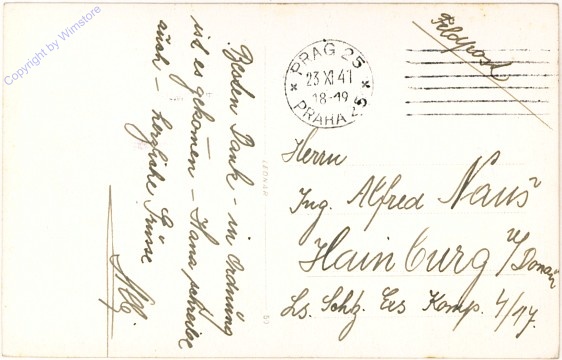 Copyright by Wimstore
Besten Dank - in Ordnung
ist es gekommen - Hans schreibe
auch - herzliche Grüsse
Feldpost
PRAG 25
23 XI 41
18-19
PRAHA 25
LEONAR
Herrn
Ing. Alfred Naus
Hainburg a/Donau
Ls. Schtz. Ers Komp. 4/17.